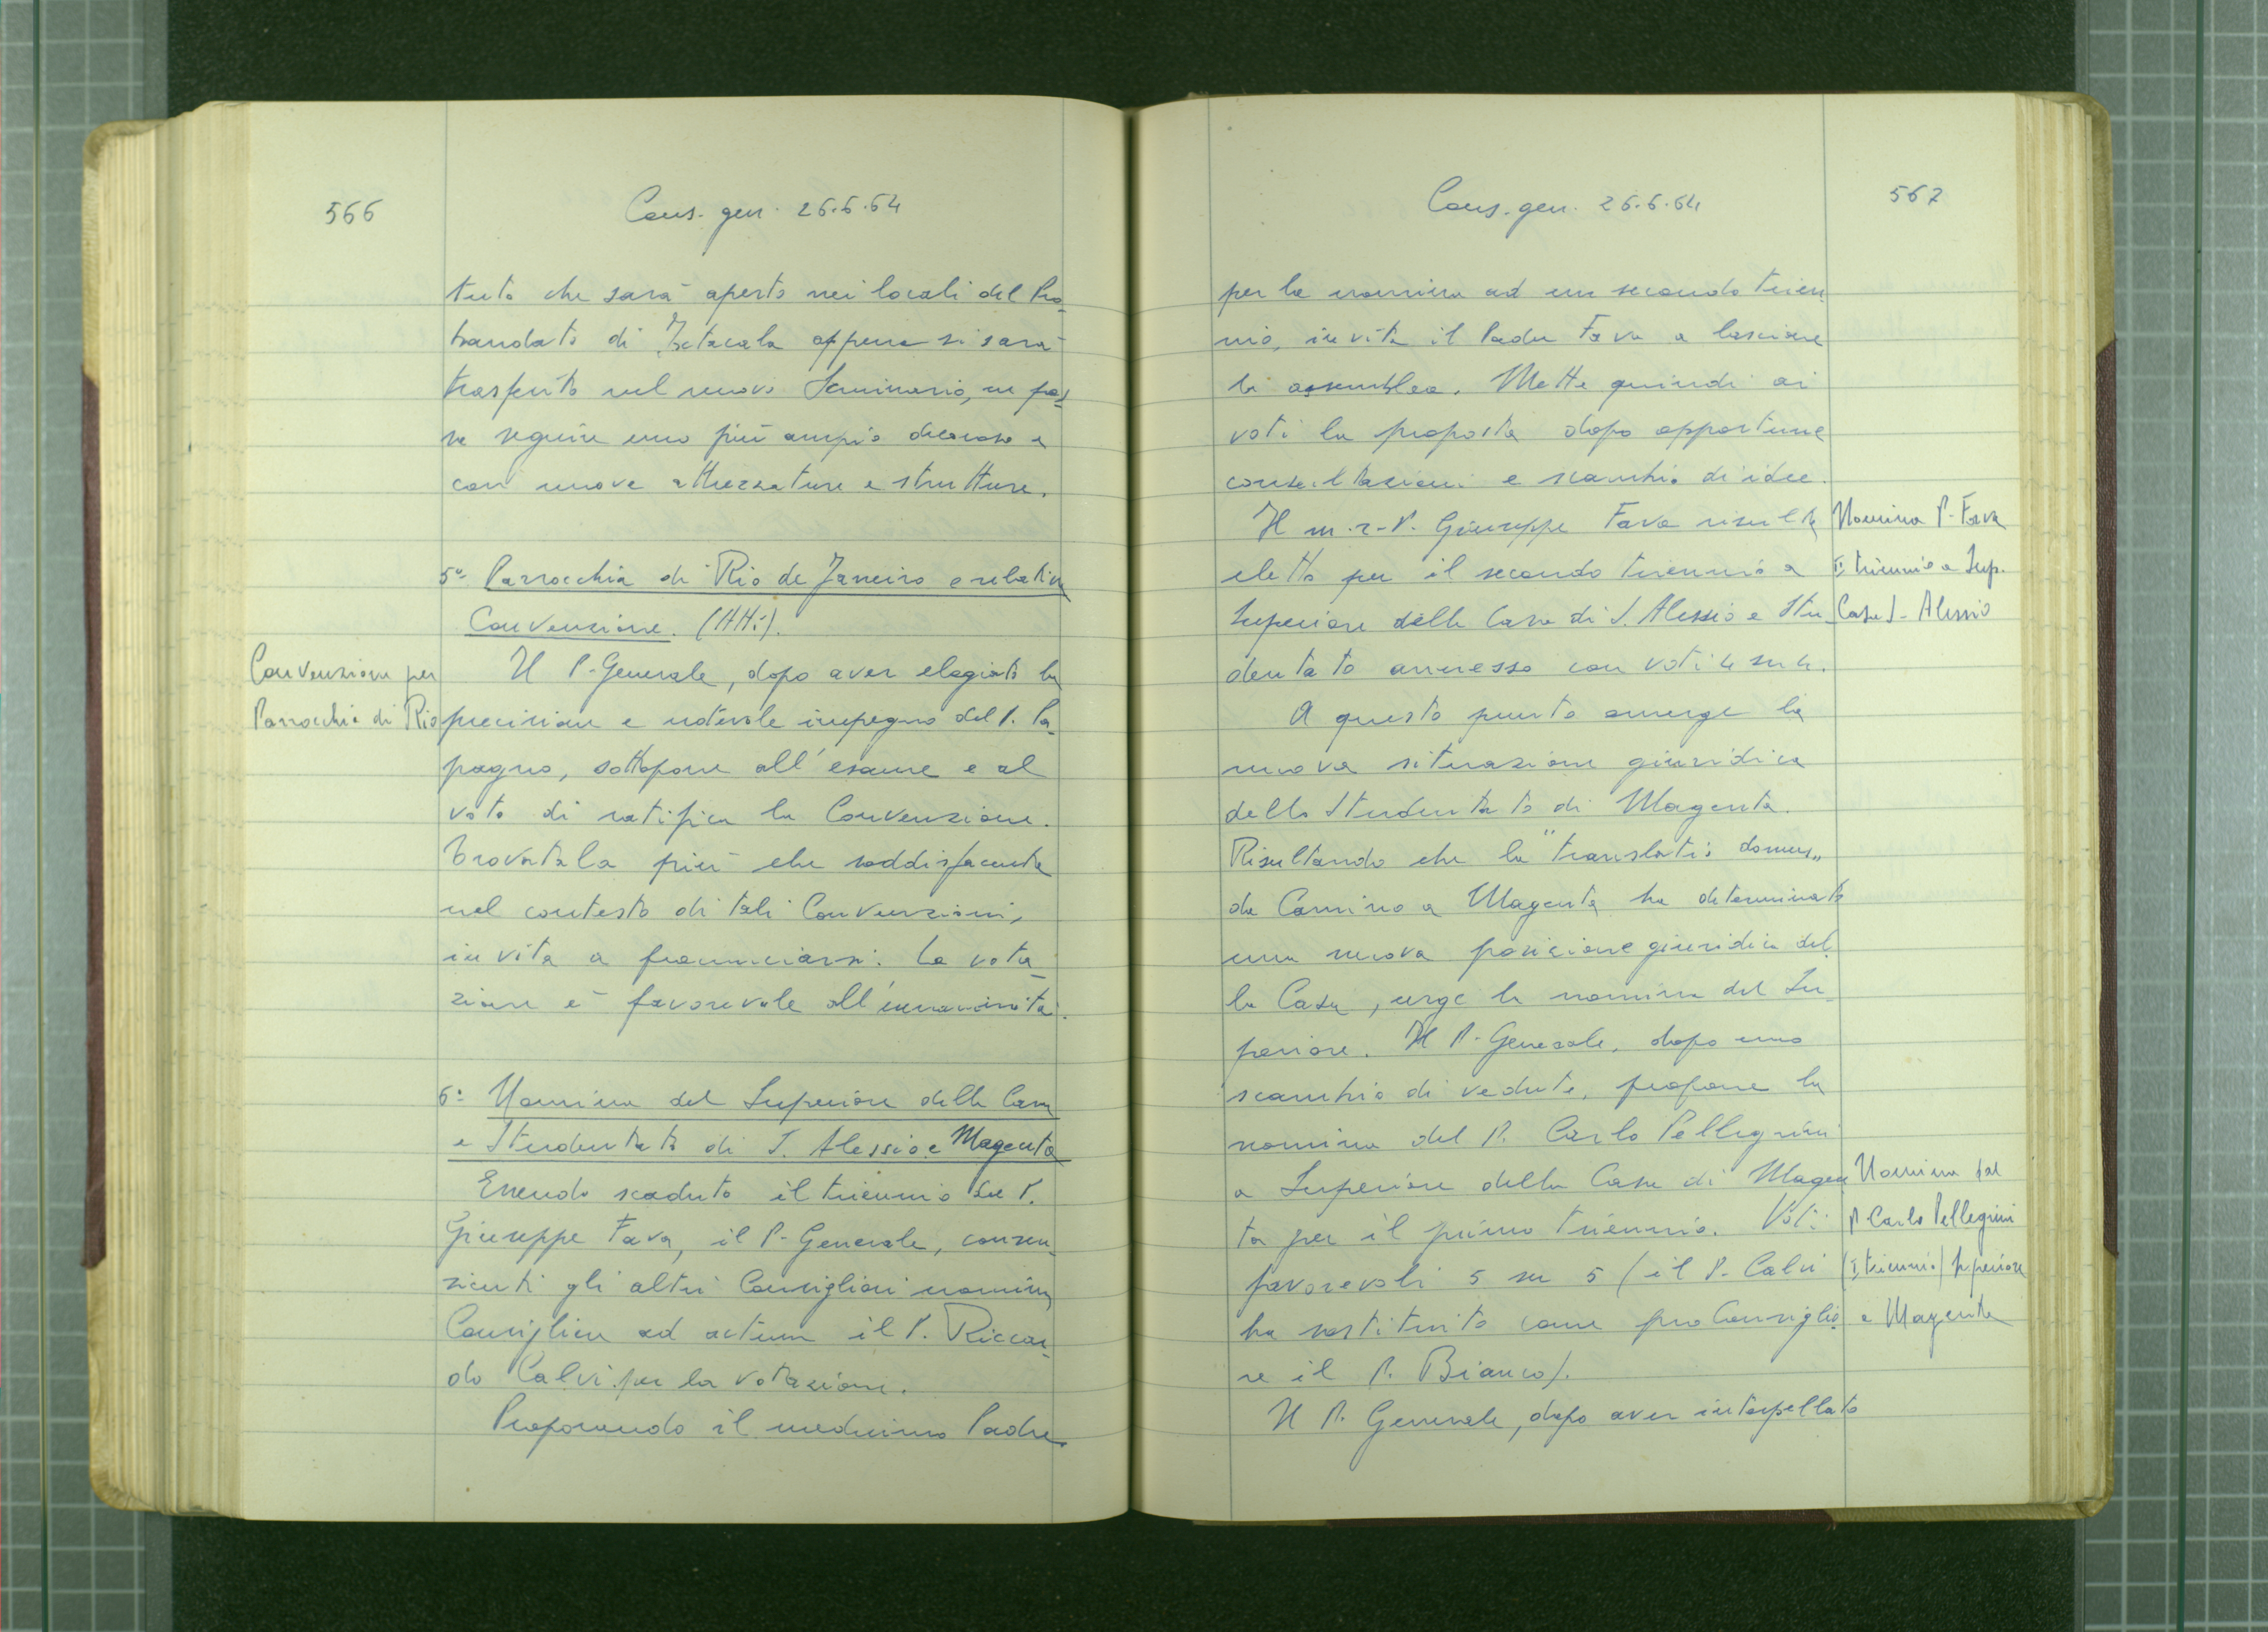 566
Cons. gen. 26.6.64
tuto che sarà aperto nei locali del Pro-
bandato di Ixtacala appena si sarà
trasferito nel nuovo Seminario, ne pos-
sa seguire uno più ampio decoroso e
con nuove attrezzature e strutture.
5° Parrocchia di Rio de Janeiro e relativa
Convenzione. (Atti).
Convenzione per
Parrocchia di Rio
Il P. Generale, dopo aver elogiato la
precisione e notevole impegno del P. Pa-
pagno, sottopone all'esame e al
voto di ratifica la Convenzione.
Trovatala più che soddisfacente
nel contesto di tali Convenzioni,
invita a pronunciarsi. La vota-
zione è favorevole all'unanimità.
6° Nomina del Superiore della Casa
e Studentato di S. Alessio e Magenta
Essendo scaduto il triennio del P.
Giuseppe Fava, il P. Generale, consen-
zienti gli altri Consiglieri nomina
Consigliere ad actum il P. Riccar-
do Calvi per la votazione.
Proponendo il medesimo Padre
567
Cons. gen. 26.6.64
per la nomina ad un secondo trien-
nio, invita il Padre Fava a lasciare
la assemblea. Mette quindi ai
voti la proposta dopo opportune
consultazioni e scambio di idee.
Il m. r. P. Giuseppe Fava risulta
eletto per il secondo triennio a
Superiore della Casa di S. Alessio e Stu-
dentato annesso con voti 4 su 4.
Nomina P. Fava
II triennio a Sup.
Casa S. Alessio
A questo punto emerge la
nuova situazione giuridica
dello Studentato di Magenta.
Risultando che la "translatio domus"
da Camino a Magenta ha determinato
una nuova posizione giuridica del-
la Casa, urge la nomina del Su-
periore. Il P. Generale, dopo uno
scambio di vedute, propone la
nomina del P. Carlo Pellegrini
a Superiore della Casa di Magen-
ta per il primo triennio. Voti
favorevoli 5 su 5 (il P. Calvi
ha sostituito come pro Consiglie-
re il P. Bianco).
Nomina del
P. Carlo Pellegrini
(I triennio) Superiore
a Magenta
Il P. Generale, dopo aver interpellato